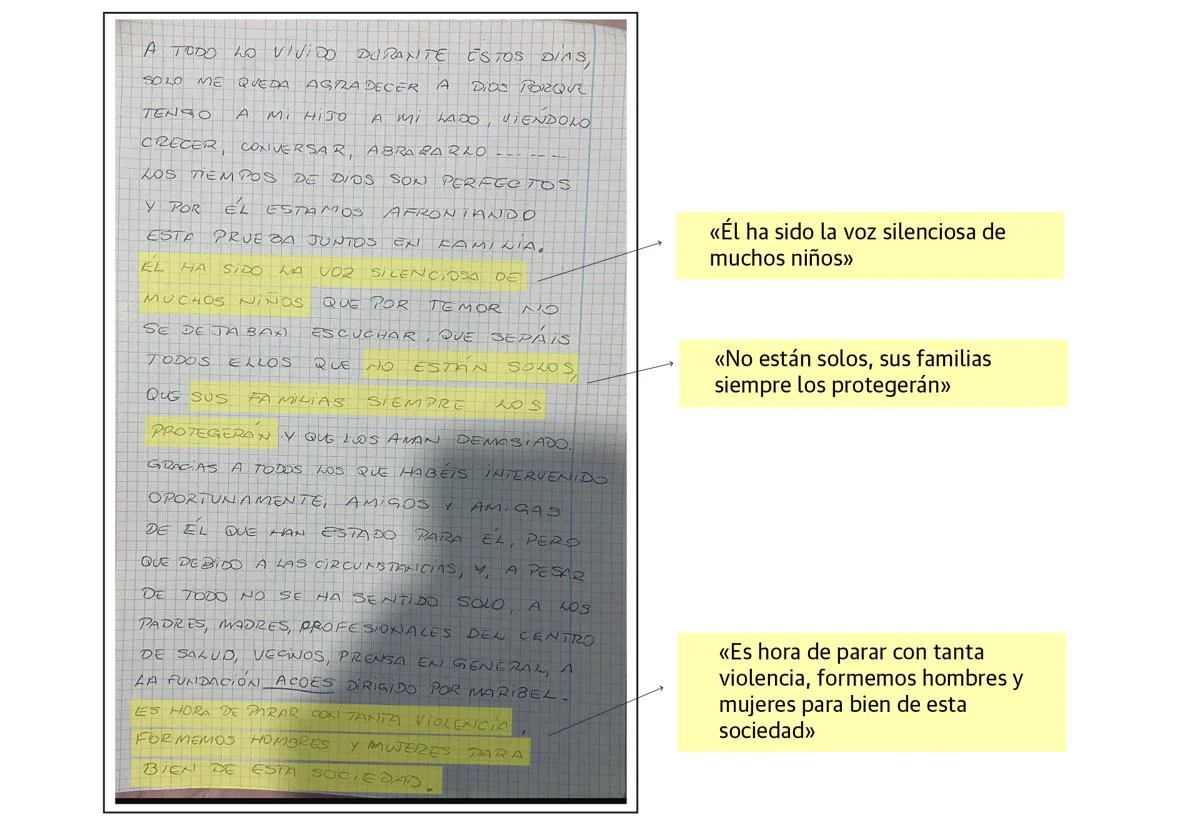 A TODO LO VIVIDO DURANTE ESTOS DÍAS,
SOLO ME QUEDA AGRADECER A DIOS PORQUE
TENGO A MI HIJO A MI LADO, VIÉNDOLO
CRECER, CONVERSAR, ABRAZARLO ------
LOS TIEMPOS DE DIOS SON PERFECTOS
Y POR ÉL ESTAMOS AFRONTANDO
ESTA PRUEBA JUNTOS EN FAMILIA.
ÉL HA SIDO LA VOZ SILENCIOSA DE
MUCHOS NIÑOS QUE POR TEMOR NO
SE DEJABAN ESCUCHAR, QUE SEPÁIS
TODOS ELLOS QUE NO ESTÁN SOLOS,
QUE SUS FAMILIAS SIEMPRE LOS
PROTEGERÁN Y QUE LOS AMAN DEMASIADO.
GRACIAS A TODOS LOS QUE HABÉIS INTERVENIDO
OPORTUNAMENTE, AMIGOS Y AMIGAS
DE ÉL QUE HAN ESTADO PARA ÉL, PERO
QUE DEBIDO A LAS CIRCUNSTANCIAS, Y, A PESAR
DE TODO NO SE HA SENTIDO SOLO, A LOS
PADRES, MADRES, PROFESIONALES DEL CENTRO
DE SALUD, VECINOS, PRENSA EN GENERAL, A
LA FUNDACIÓN ACOES DIRIGIDO POR MARIBEL-
ES HORA DE PARAR CON TANTA VIOLENCIA,
FORMEMOS HOMBRES Y MUJERES PARA
BIEN DE ESTA SOCIEDAD.
«Él ha sido la voz silenciosa de
muchos niños»
«No están solos, sus familias
siempre los protegerán»
«Es hora de parar con tanta
violencia, formemos hombres y
mujeres para bien de esta
sociedad»